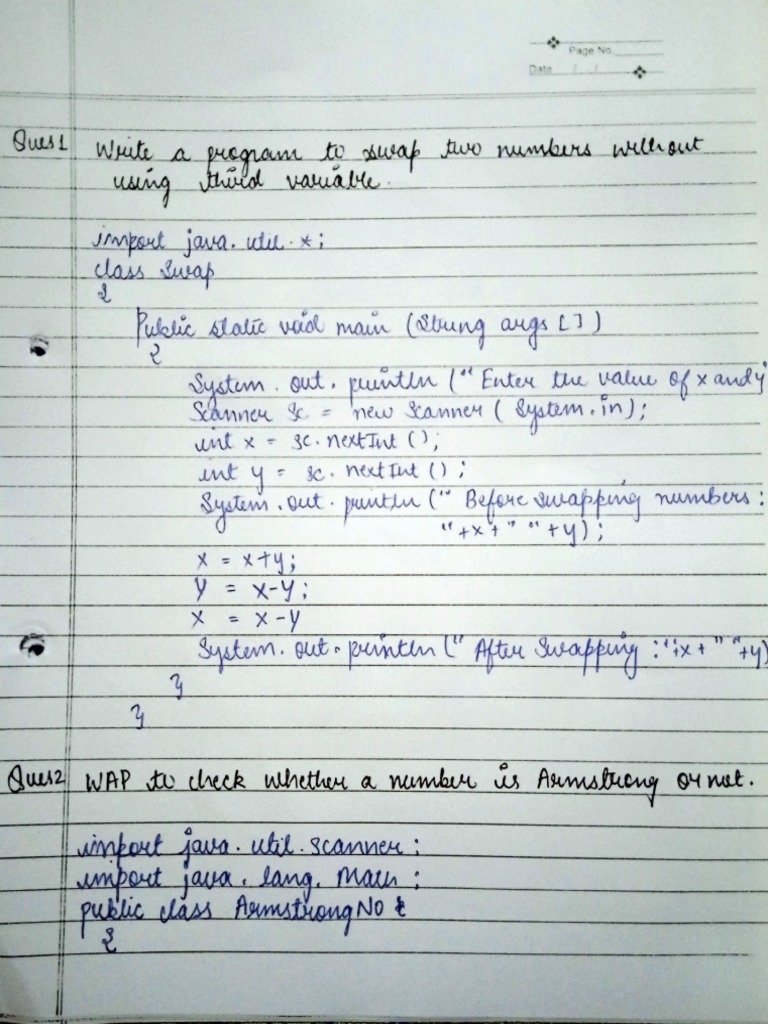 Page No.
Date / /
Ques1 Write a program to swap two numbers without
using third variable.
import java. util. *;
class Swap
{
Public static void main (String args [])
{
System. out. println (" Enter the value of x and y
Scanner Sc = new Scanner ( System.in);
int x = sc. nextInt ();
int y = sc. nextInt () ;
System. out. println (" Before swapping numbers :
"+x+" "+y);
x = x+y;
y = x-y;
x = x-y
System. out. println (" After Swapping :"+x+" "+y)
}
}
Ques2 WAP to check whether a number is Armstrong or not.
import java. util. Scanner ;
import java. lang. Math ;
public class ArmstrongNo {
{